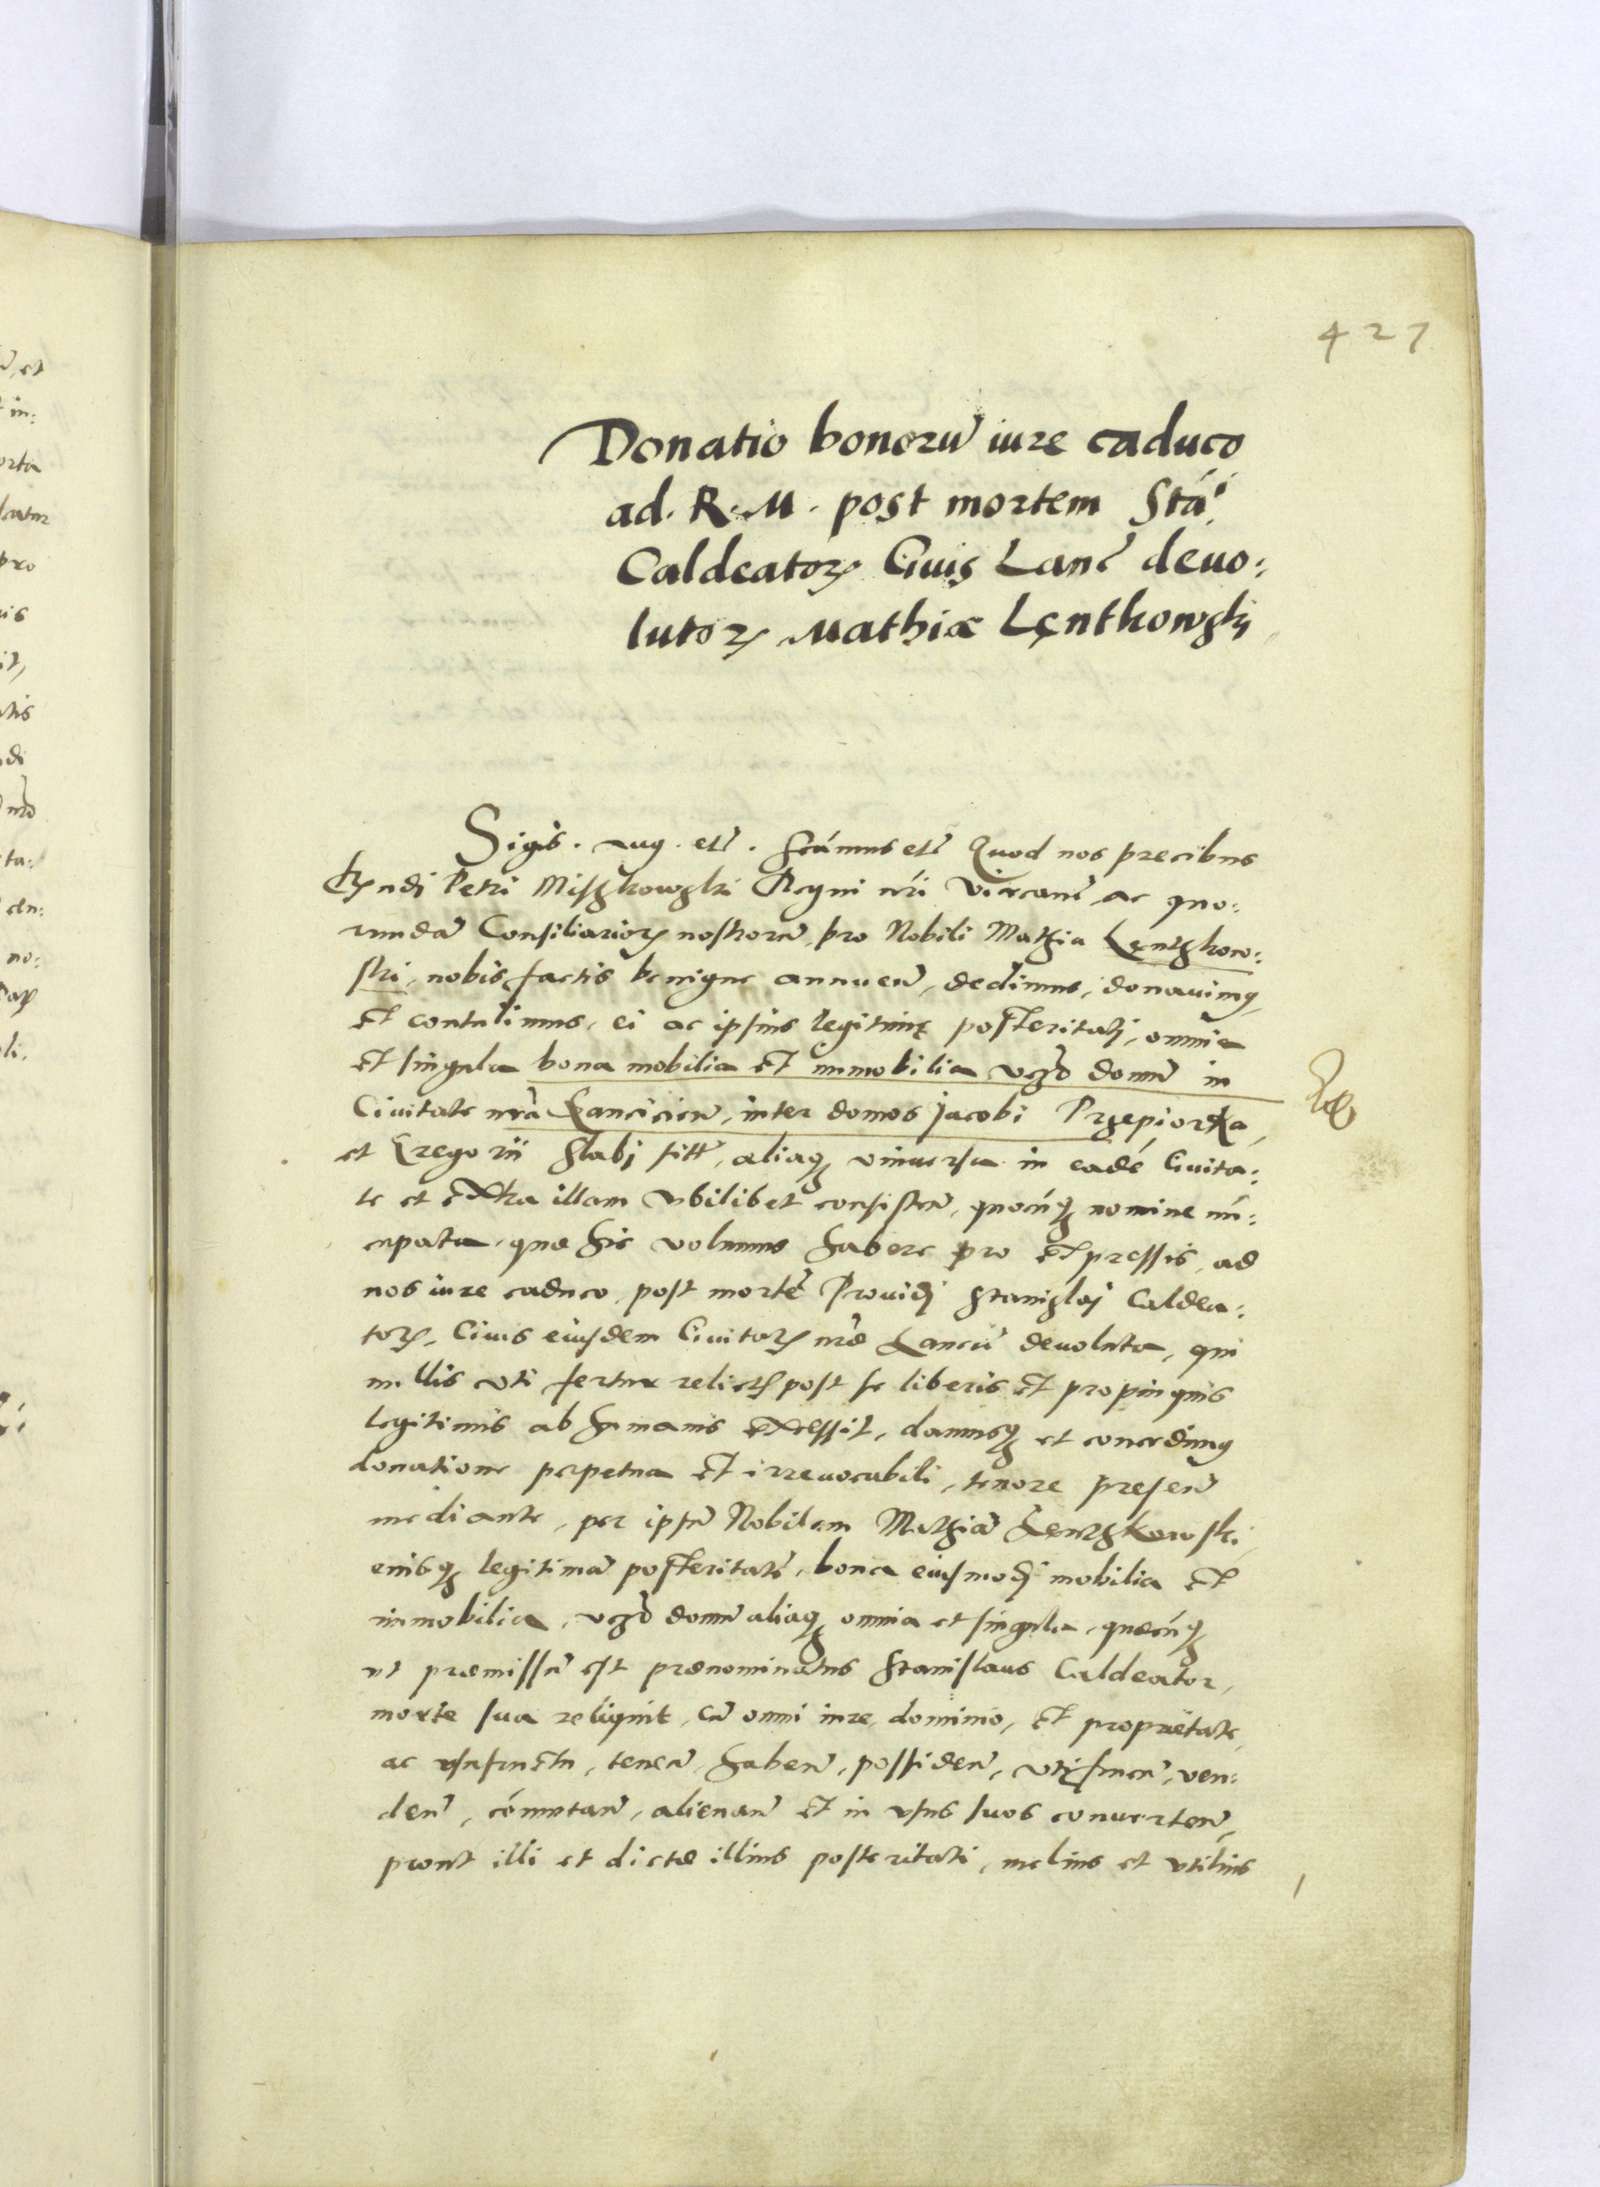 427
Donatio bonorũ iure caduco
ad. R. M. post mortem Stã.
Caldeatorꝭ Ciuis Lanc̃ deuo:
lutorꝝ Mathiæ Lęntkowskį
Sigis. Aug. etc̃. Scimus etc̃ Quod nos precibus
Petri Miszkowski Regni nr̃i Vicecanc̃ ac quo:
rundã Consiliariorꝝ nostrorũ, pro Nobili Mathia Lęntzkow:
ski, nobis factis benigne annuen̄, dedimus, donauimꝰ,
et contulimus, ei ac ipsius legitimę posteritati, omnia
et singula bona mobilia et immobilia vcz domũ in
Ciuitate nrã Lancicien̄, inter domos Jacobi Przepiorka,
et Gregorii Slabj sitt̃, aliaqꝫ vniuersa in eadẽ Ciuita:
te et extra illam vbilibet consisten̄, quocũqꝫ nomine nũ:
cupata, quæ hic volumus habere pro expressis, ad
nos iure caduco, post mortẽ Prouidi Stanislaj Caldea:
torꝭ, Ciuis eiusdem Ciuitatꝭ nr̃æ Lancic̃ deuoluta, qui
nullis vti fertur relictꝭ post se liberis et propinquis
legitimis ab humanis excessit, damusqꝫ et concedimꝰ
donatione perpetua et irreuocabili, tenore presen̄
mediante, per ipsũ Nobilem Mathiã Lęntzkowski,
eiusqꝫ legitimã posteritatẽ, bona eiusmodi mobilia et
immobilia, vcz domũ aliaqꝫ omnia et singula, quæcũqꝫ
vt præmissũ est prænominatus Stanislaus Caldeator,
morte sua reliquit, cũ omni iure, dominio, et proprietate,
ac vsufructu, tenen̄, haben̄, possiden̄, vtifruen̄, ven:
den̄, cõmutan̄, alienan̄ et in vsus suos conuerten̄,
prout illi et dictæ illius posteritati, melius et vtilius